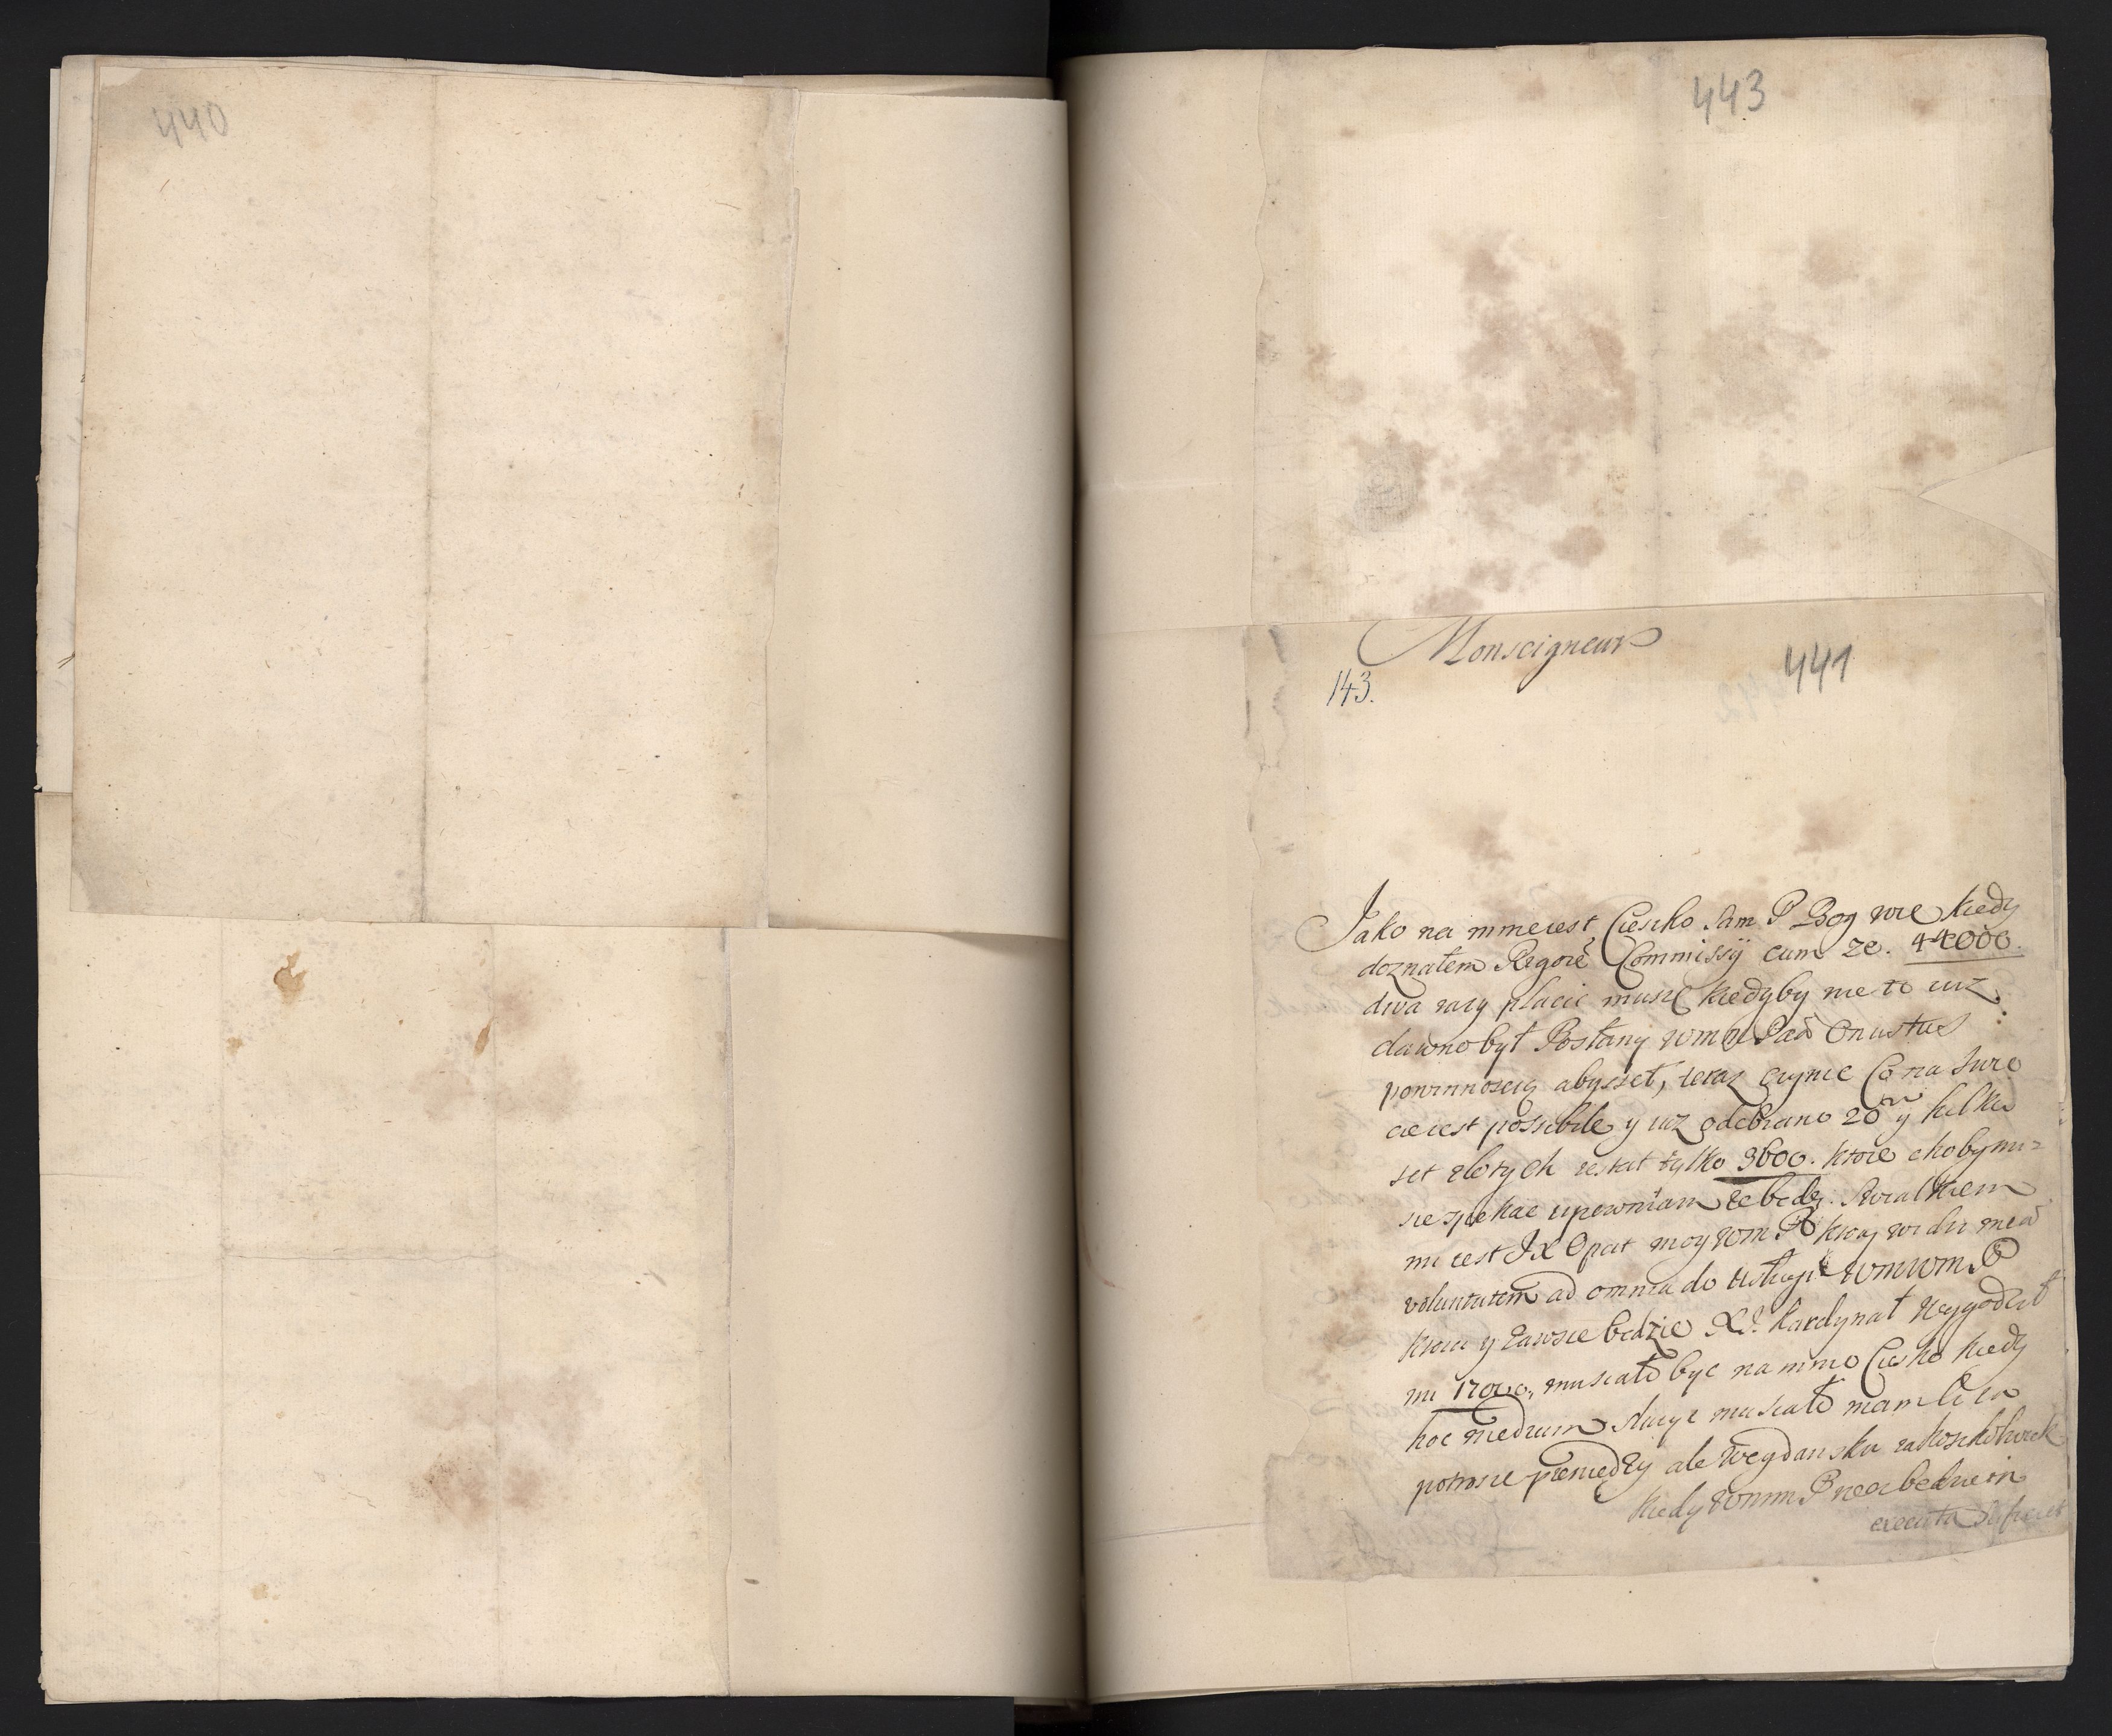 440
443
Monseigneur
441
143.
Jako na mnie iest Ciescho Sam P Bog wie kiedy
doznałem Rigore Commissÿ cum ze. 44000.
dwa razy płacic musze kiedyby nie to iuz
dawno był Posłany wm Pad Onustus
powinnoscią abysset, teraz czynie Co na
iest possibile y iuz odebrano 20 y kilku
set złotych restat tylko 3600. ktore choby mi
upewniam ze bedą.
mi iest JX Opat moy wm P ktory widzi mea
voluntatem ad omnia do usługi wmwm P
y zawsze będzie Xdz Kardynał wygodził
mi 17000, musiało byc na mnie Ciesko kiedy
hoc medium słuzyc musiało mam
potrosze pieniędzy ale we gdansku
kiedy wmm P bedzie in
executa